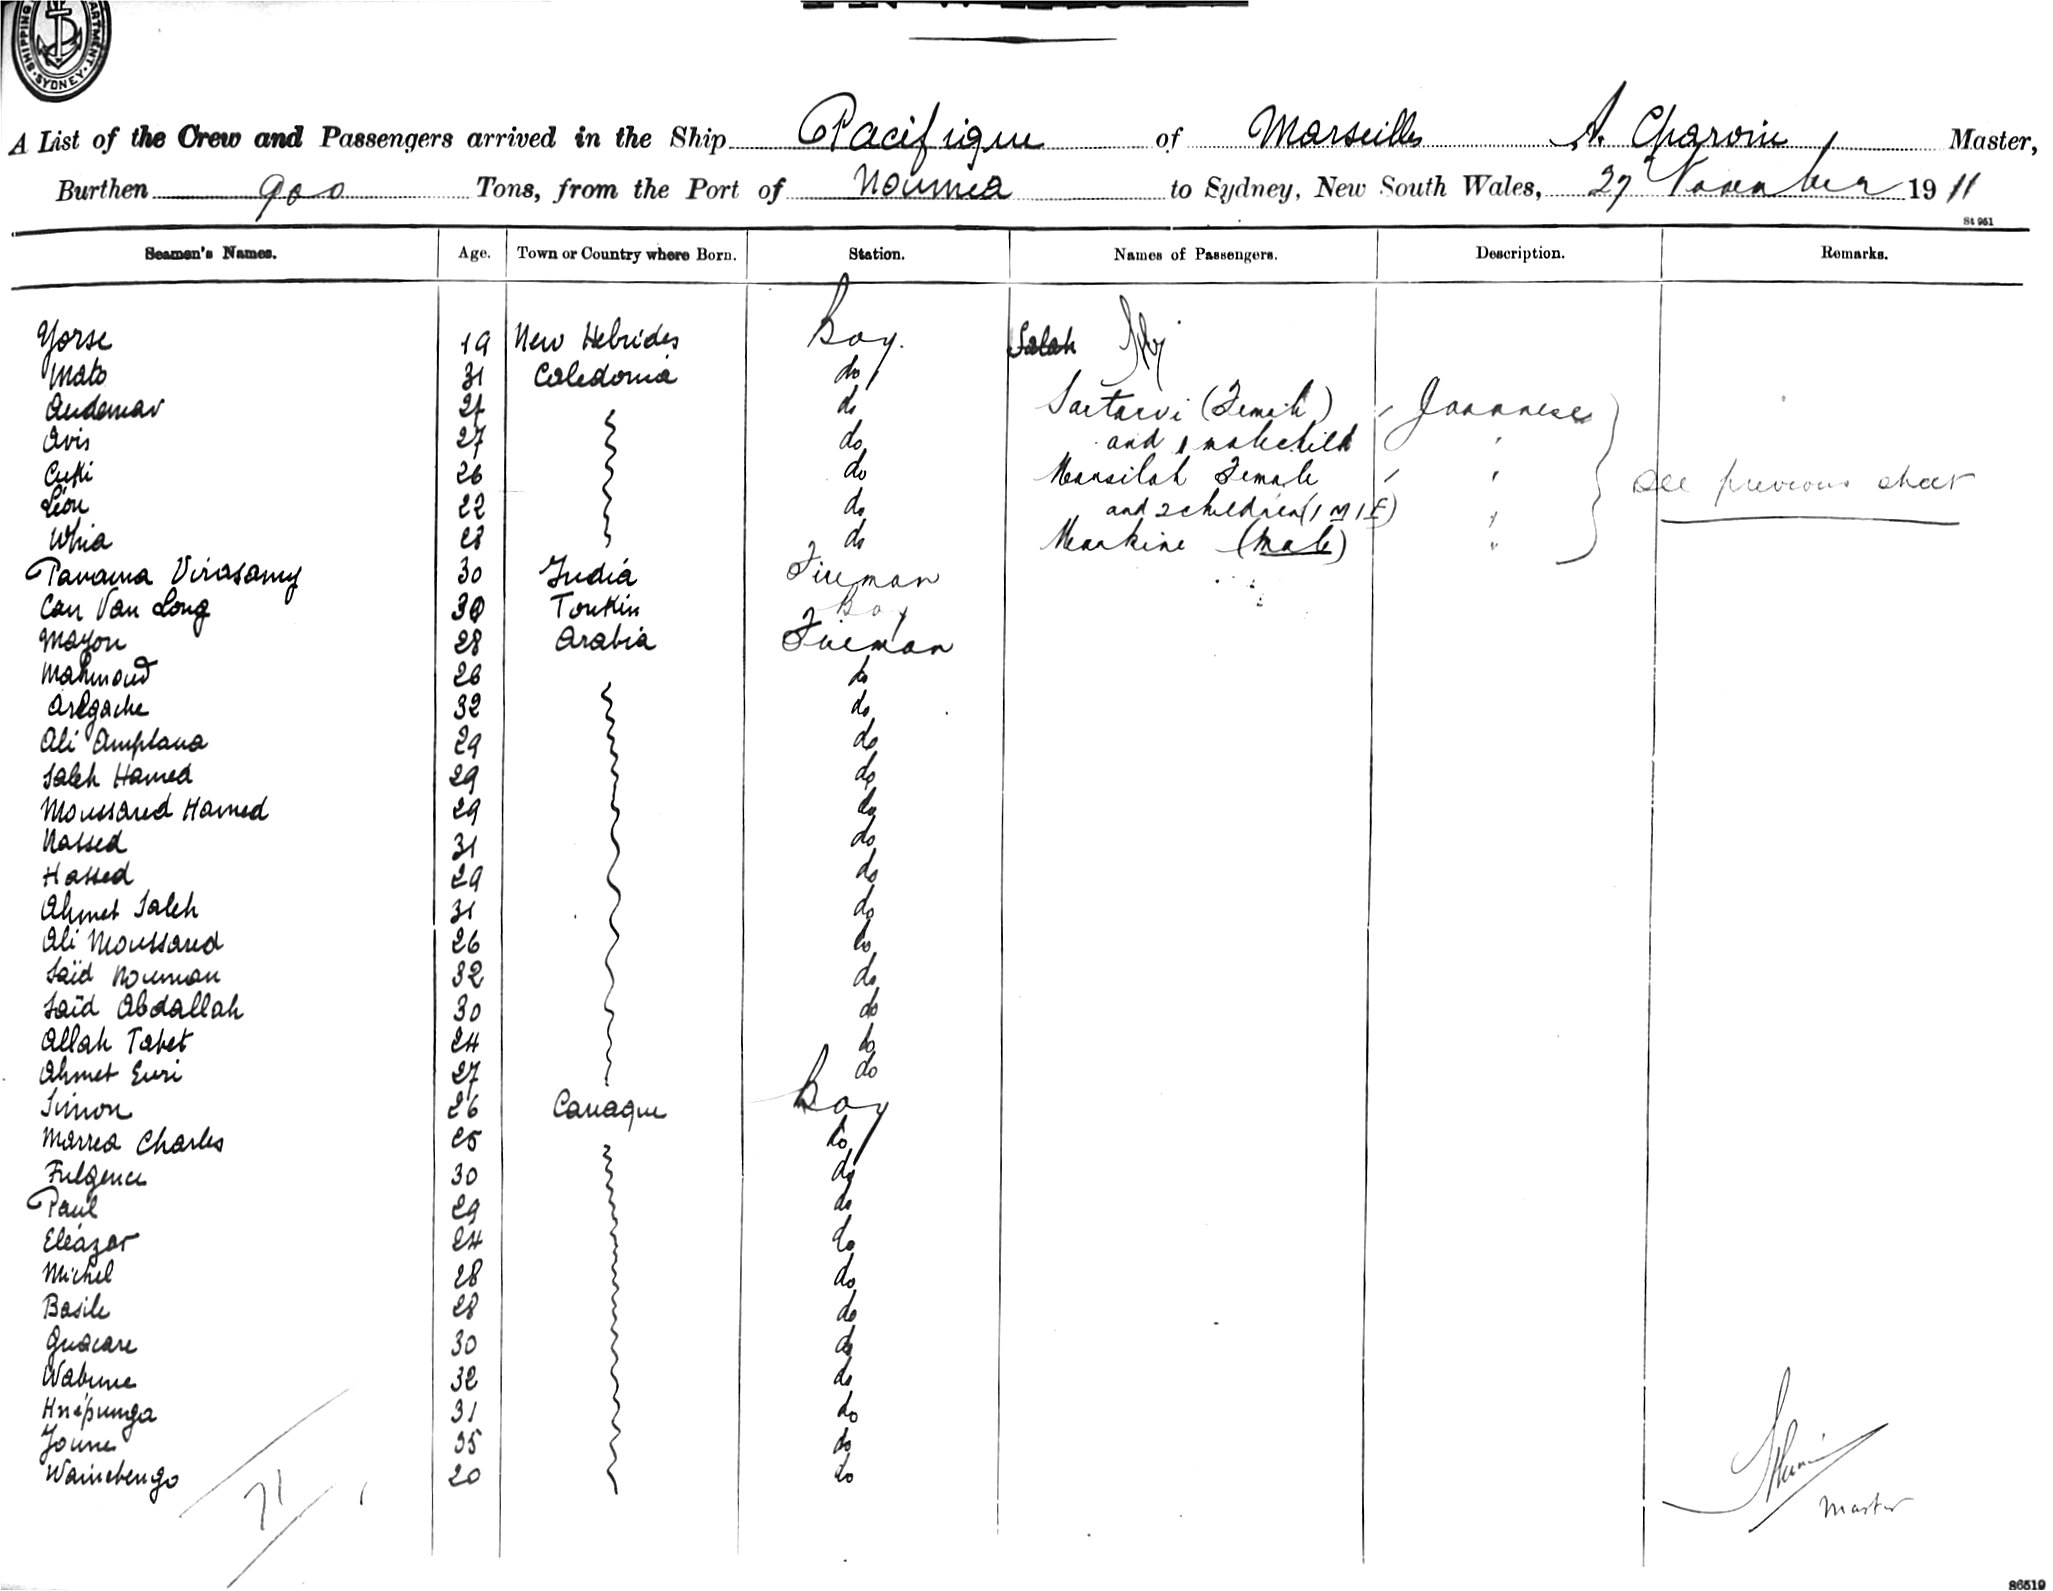 SHIPPING DEPARTMENT SYDNEY
A List of the Crew and Passengers arrived in the Ship Pacifique of Marseilles A. Charvin Master,
Burthen 900 Tons, from the Port of Noumea to Sydney, New South Wales, 27 November 1911
St 951
Seamen's Names. Age. Town or Country where Born. Station. Names of Passengers. Description. Remarks.
Yorse 19 New Hebrides Boy. Salah
Mato 31 Caledonia do
Audemar do Sartarvi (Female) Javanese
Avis 27 do and 1 male child "
Cuki 26 do Mansilah Female " see previous sheet
Léon 22 do and 2 children (1 M 1 F) "
Whia 28 do Mankine (Male) "
Tavama Virasamy 30 India Fireman
Can Van Long 30 Tonkin Boy
Mayou 28 Arabia Fireman
Mahmoud 26 do
Arlgache 32 do
Ali Amplana 29 do
Saleh Hamed 29 do
Moussaud Hamed 29 do
Nassed 31 do
Hassed 29 do
Ahmet Saleh 31 do
Ali Moussaud 26 do
Saïd Nouman 32 do
Saïd Abdallah 30 do
Allah Tabet 24 do
Ahmet Euri 27 do
Simon 26 Canaque Boy
Marrea Charles 25 do
Fulgence 30 do
Paul 29 do
Eléazar 24 do
Michel 28 do
Basile 28 do
Guacare 30 do
Wabune 32 do
Hnépunga 31 do
Joune 35 do
Wainebengo 20 do
71
Master
86519